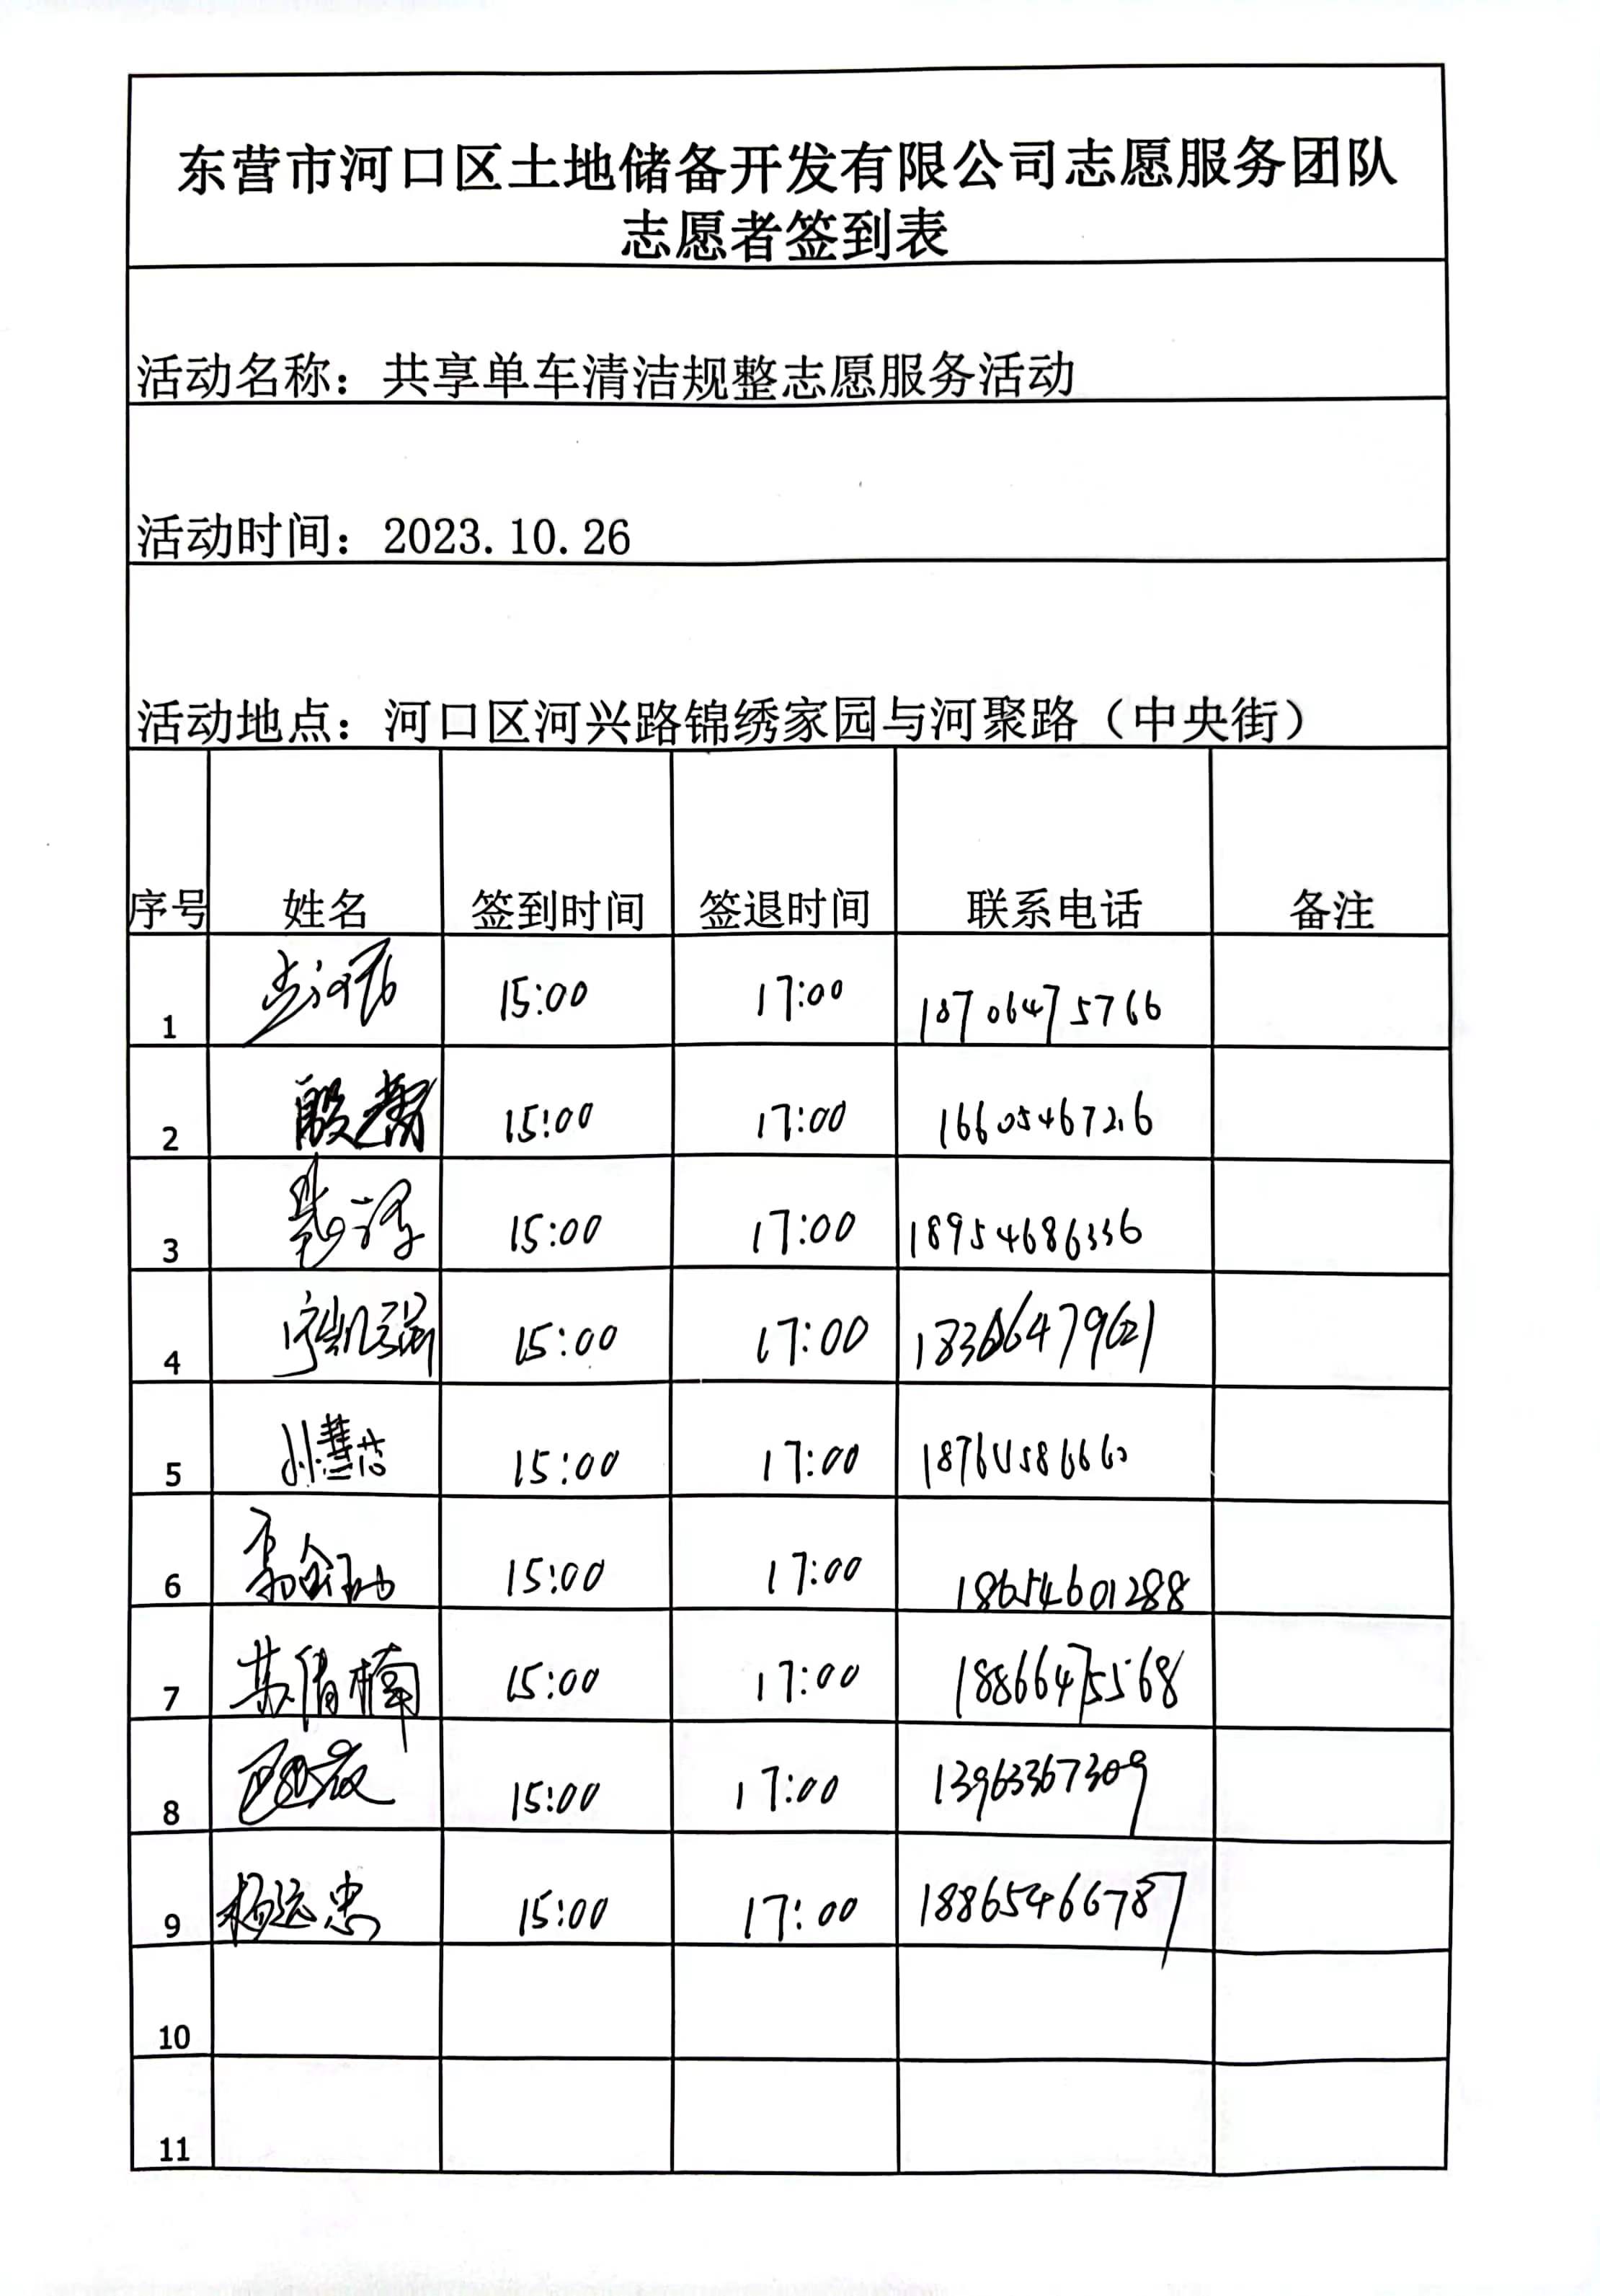 东营市河口区土地储备开发有限公司志愿服务团队
志愿者签到表
活动名称：共享单车清洁规整志愿服务活动
活动时间：2023.10.26
活动地点：河口区河兴路锦绣家园与河聚路（中央街）
序号 姓名 签到时间 签退时间 联系电话 备注
1 15:00 17:00 18706475766
2 殷 15:00 17:00 16605467216
3 15:00 17:00 18954686336
4 15:00 17:00
5 孙慧芳 15:00 17:00 18764586660
6 15:00 17:00 18654601288
7 苏倩楠 15:00 17:00 18866475568
8 15:00 17:00 13963367309
9 杨运忠 15:00 17:00 18865466787
10
11